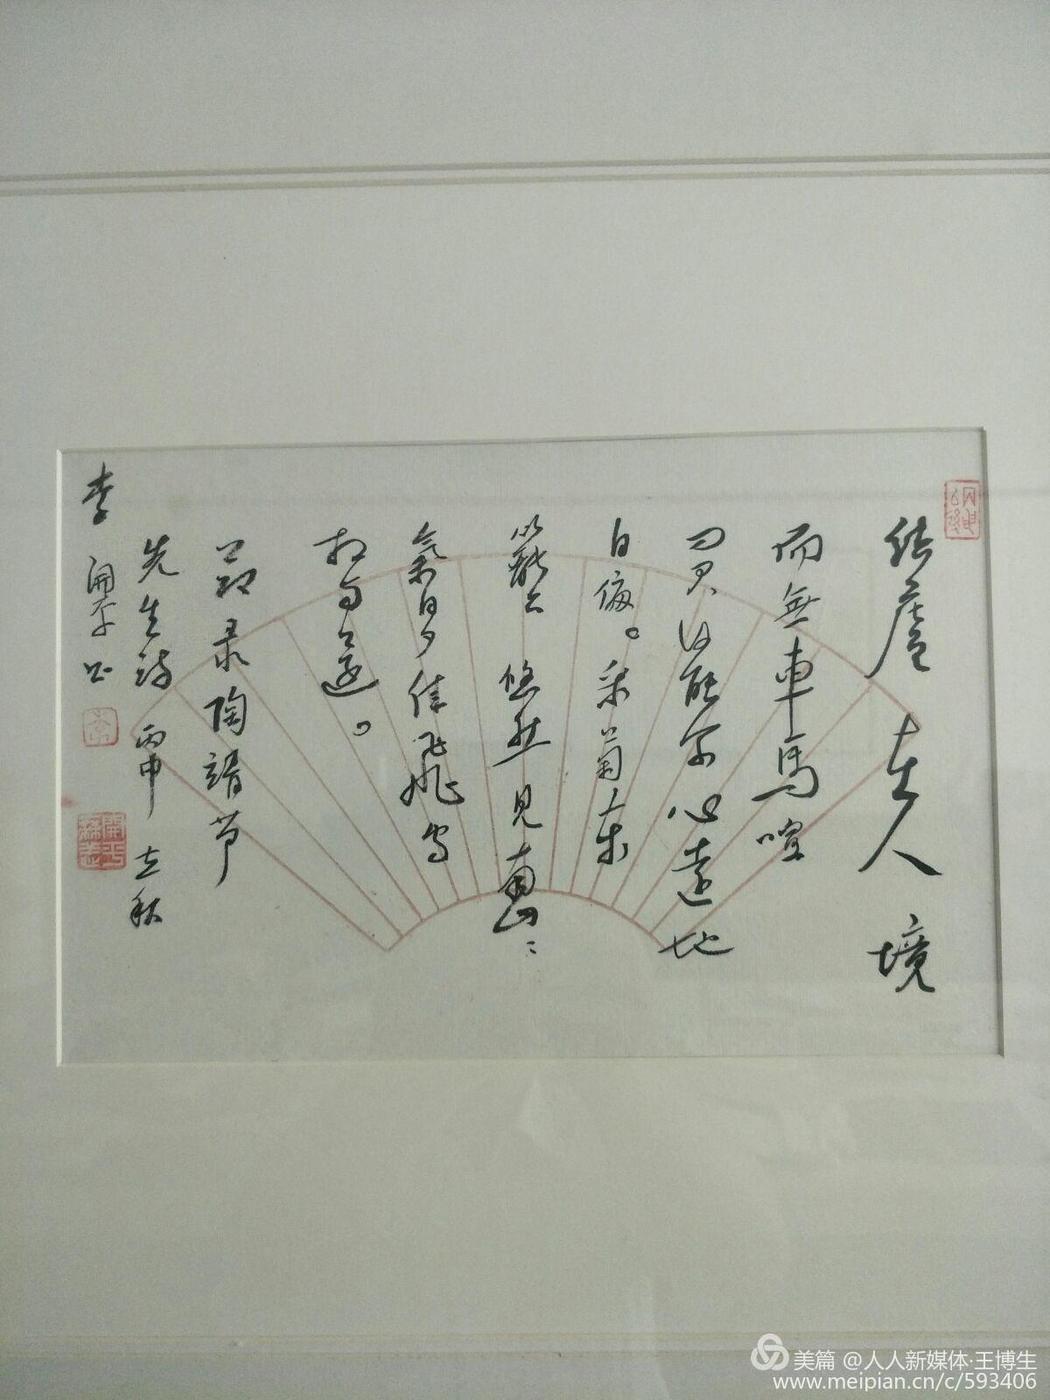 结廬在人境
而無車馬喧
问君何能尔心遠地
自偏。采菊东
籬下悠然見南山山
氣日夕佳飞飛鸟
相与还。
节录陶靖节
先生詩 丙申立秋
李開平书
美篇 @人人新媒体·王博生
www.meipian.cn/c/593406